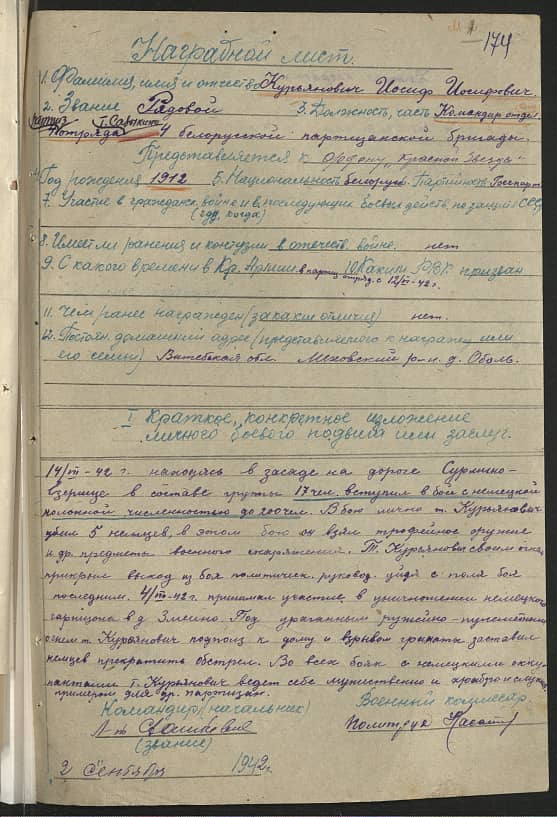 174
Наградной лист.
1. Фамилия, имя и отчество Курьянович Иосиф Иосифович.
2. Звание Рядовой 3. Должность, часть Командир отдел.
партиз. т. Савыкина
П отряда 4 белорусской партизанской бригады.
Представляется к Ордену "Красной Звезды"
4. Год рождения 1912 5. Национальность белорус. Партийность беспарт.
7. Участие в гражданс. войне и в последующих боевых действ. по защите СССР
(где, когда)
8. Имеет ли ранения и контузии в отечеств. войне. нет
9. С какого времени в Кр. Армии в парт. отряд. с 10. Каким РВК призван
11. Чем ранее награжден (за какие отличия) нет.
12. Постоян. домашний адрес (представляемого к награжд. или
его семьи) Витебская обл. Меховский р-н. д. Оболь.
I Краткое, конкретное изложение
личного боевого подвига или заслуг.
14/III-42 г. находясь в засаде на дороге Сурмино-
Езерище в составе группы 17 чел. вступил в бой с немецкой
колонной численностью до 200 чел. В бою лично т. Курьянович
убил 5 немцев, в этом бою он взял трофейное оружие
и др. предметы военного снаряжения. Т. Курьянович своим огнем
прикрыл выход из боя политическ. руковод. уйдя с поля боя
последним. принимал участие в уничтожении немецкого
гарнизона в д. Змеино. Под ураганным ружейно-пулеметным
огнем т. Курьянович подполз к дому и взрывом гранаты заставил
немцев прекратить обстрел. Во всех боях с немецкими окку-
пантами т. Курьянович ведет себя мужественно и храбро и служит
примером для др. партизан.
Командир (начальник) Военный комиссар.
Л-т Политрук
(звание)
2 Сентября 1942г.